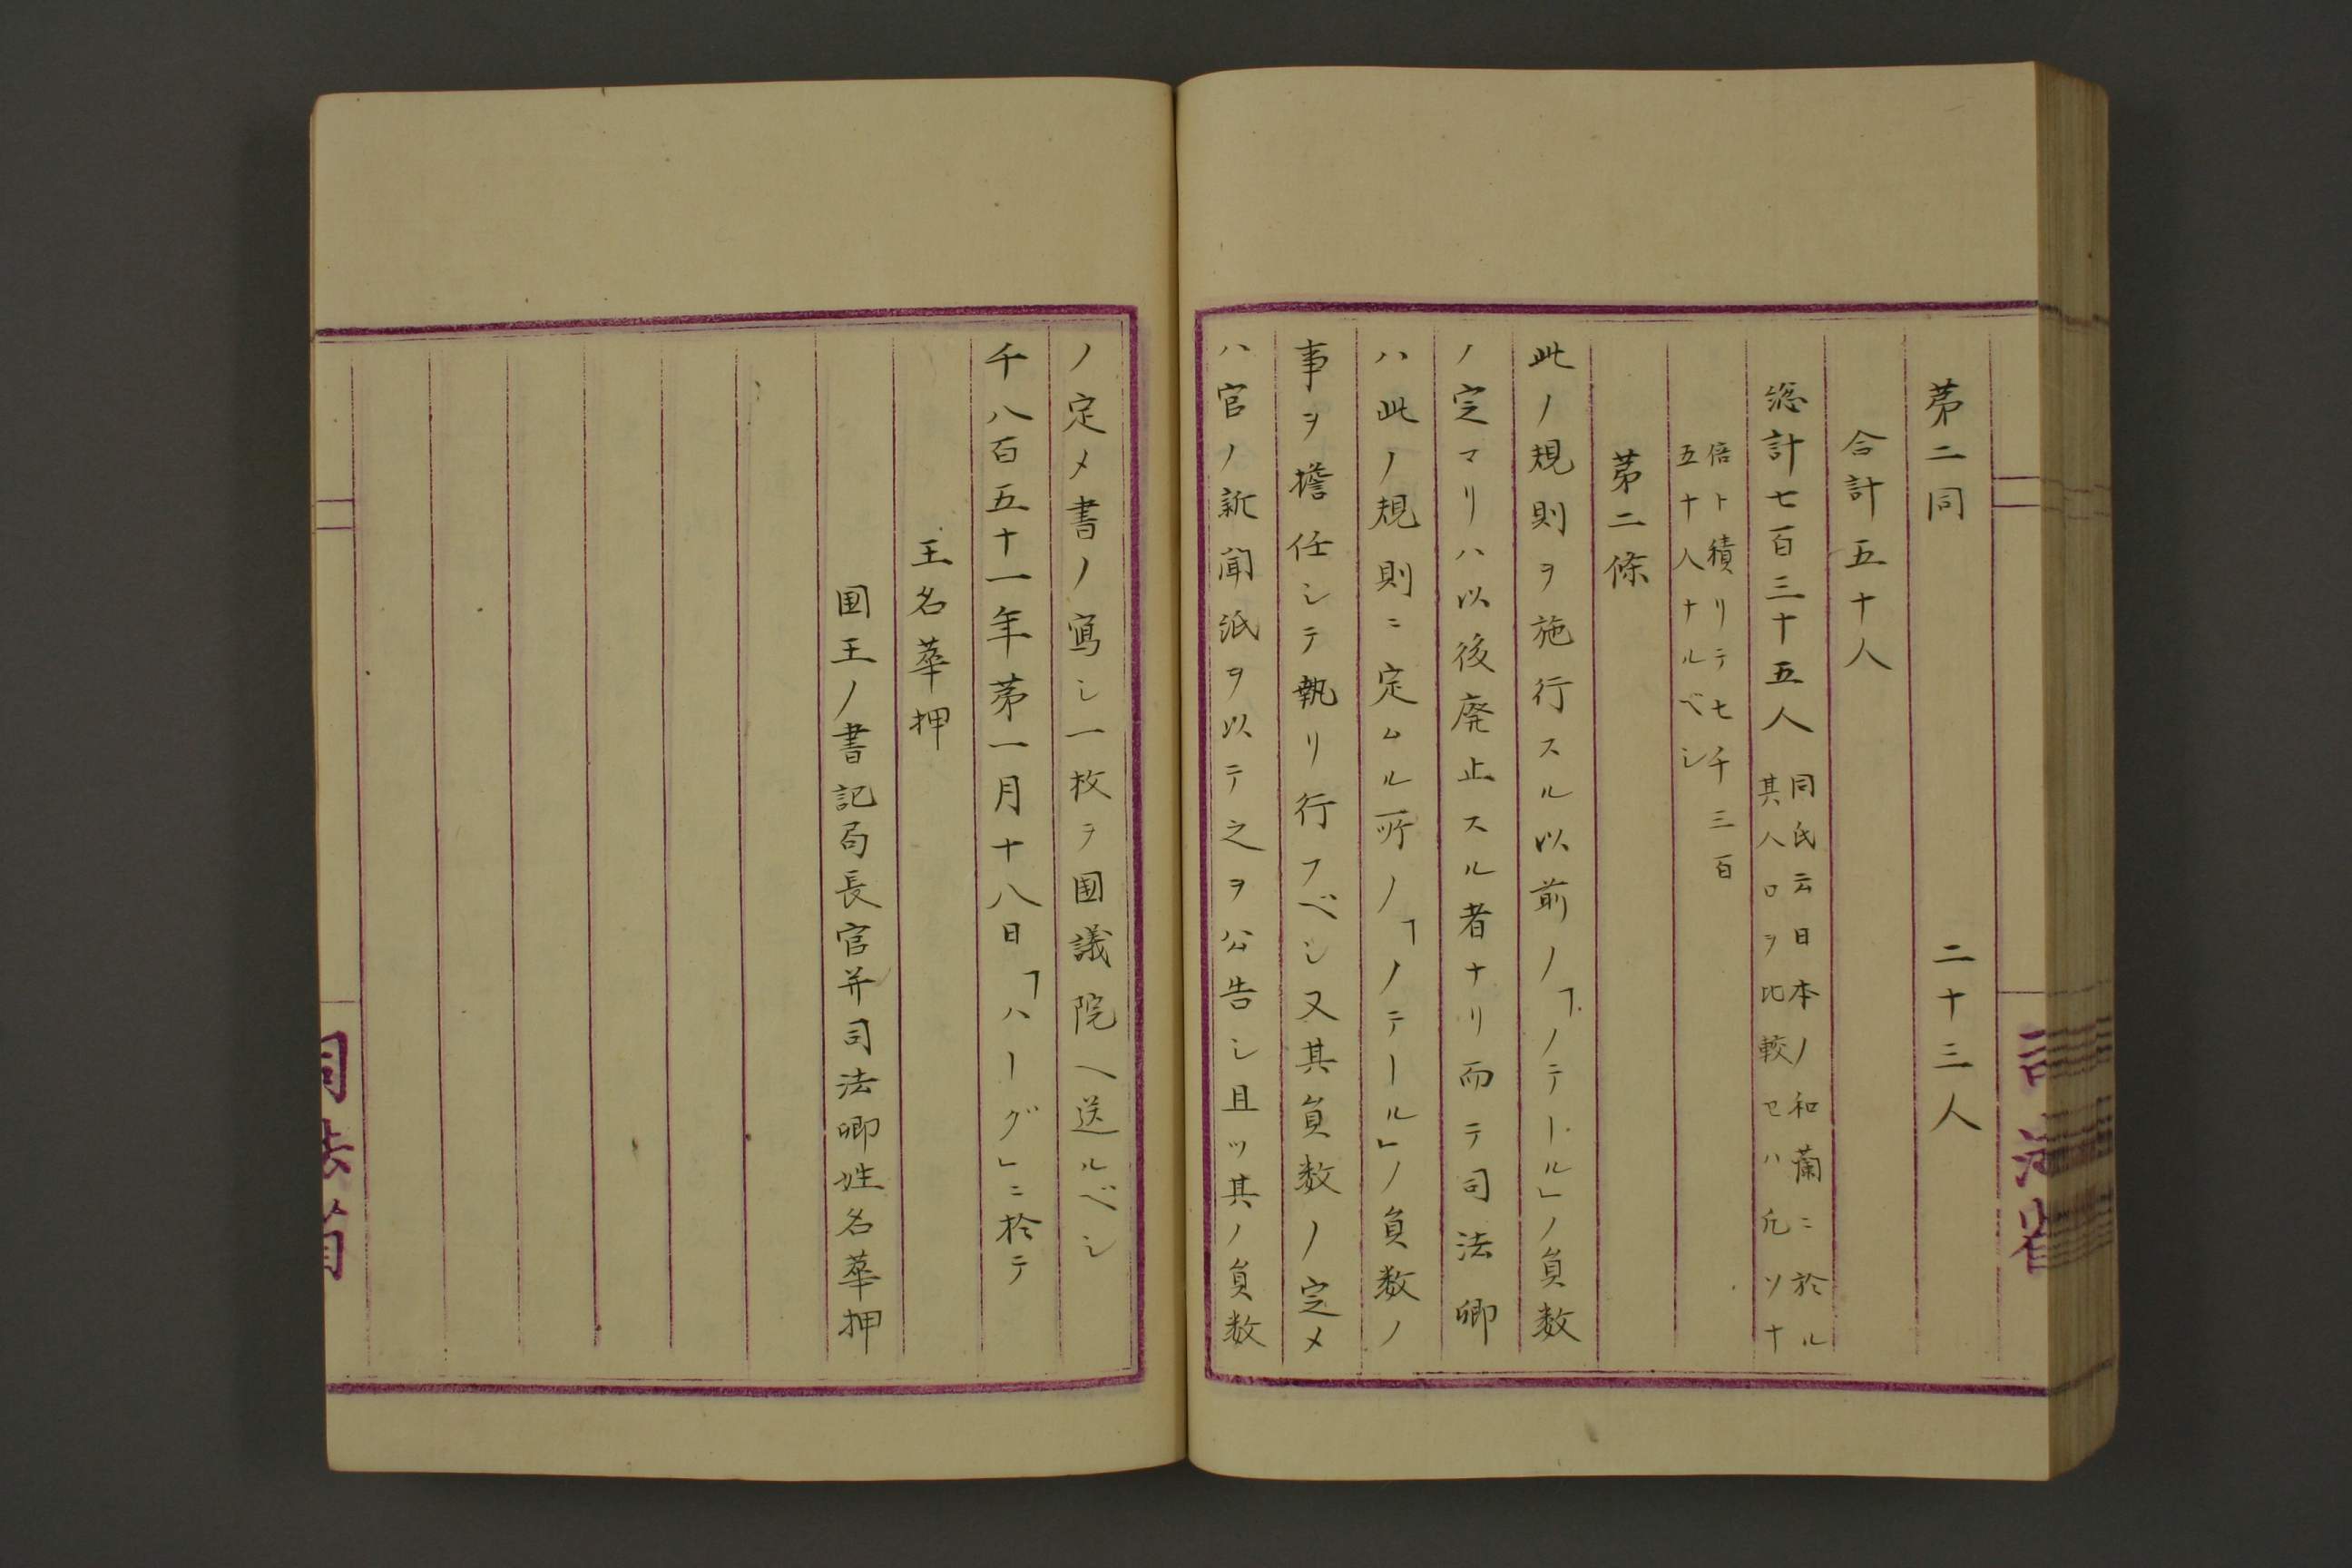 第二同　二十三人
合計五十人
総計七百三十五人　同氏云日本ノ和蘭ニ於ル
其人口ヲ比較セハ凡ソ十
倍ト積リテ七千三百
五十人ナルベシ
第二條
此ノ規則ヲ施行スル以前ノ「ノテール」ノ負数
ノ定マリハ以後廃止スル者ナリ而テ司法卿
ハ此ノ規則ニ定ムル所ノ「ノテール」ノ負数ノ
事ヲ擔任シテ執リ行フベシ又其負数ノ定メ
ハ官ノ新聞紙ヲ以テ之ヲ公告シ且ツ其ノ負数
ノ定メ書ノ寫シ一枚ヲ国議院ヘ送ルベシ
千八百五十一年第一月十八日「ハーグ」ニ於テ
王名華押
国王ノ書記局長官并司法卿姓名華押
司法省
司法省